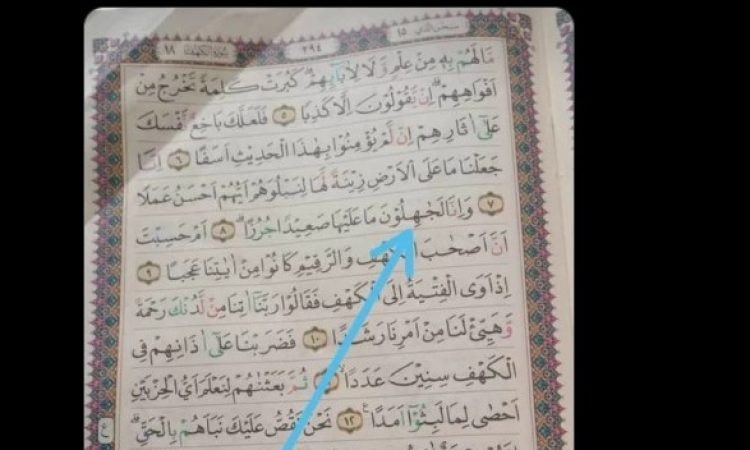 سبحن الذي ١٥ ٢٩٤ سورة الكهف ١٨
مَا لَهُمْ بِهٖ مِنْ عِلْمٍ وَّلَا لِاٰبَاۤىِٕهِمْۗ كَبُرَتْ كَلِمَةً تَخْرُجُ مِنْ
اَفْوَاهِهِمْۗ اِنْ يَّقُوْلُوْنَ اِلَّا كَذِبًا ٥ فَلَعَلَّكَ بَاخِعٌ نَّفْسَكَ
عَلٰٓى اٰثَارِهِمْ اِنْ لَّمْ يُؤْمِنُوْا بِهٰذَا الْحَدِيْثِ اَسَفًا ٦ اِنَّا
جَعَلْنَا مَا عَلَى الْاَرْضِ زِيْنَةً لَّهَا لِنَبْلُوَهُمْ اَيُّهُمْ اَحْسَنُ عَمَلًا
٧ وَاِنَّا لَجٰهِلُوْنَ مَا عَلَيْهَا صَعِيْدًا جُرُزًاۗ ٨ اَمْ حَسِبْتَ
اَنَّ اَصْحٰبَ الْكَهْفِ وَالرَّقِيْمِ كَانُوْا مِنْ اٰيٰتِنَا عَجَبًا ٩
اِذْ اَوَى الْفِتْيَةُ اِلَى الْكَهْفِ فَقَالُوْا رَبَّنَآ اٰتِنَا مِنْ لَّدُنْكَ رَحْمَةً
وَّهَيِّئْ لَنَا مِنْ اَمْرِنَا رَشَدًا ١٠ فَضَرَبْنَا عَلٰٓى اٰذَانِهِمْ فِى
الْكَهْفِ سِنِيْنَ عَدَدًاۙ ثُمَّ بَعَثْنٰهُمْ لِنَعْلَمَ اَيُّ الْحِزْبَيْنِ
اَحْصٰى لِمَا لَبِثُوْٓا اَمَدًا ࣖ ١٢ نَحْنُ نَقُصُّ عَلَيْكَ نَبَاَهُمْ بِالْحَقِّۗ
ع